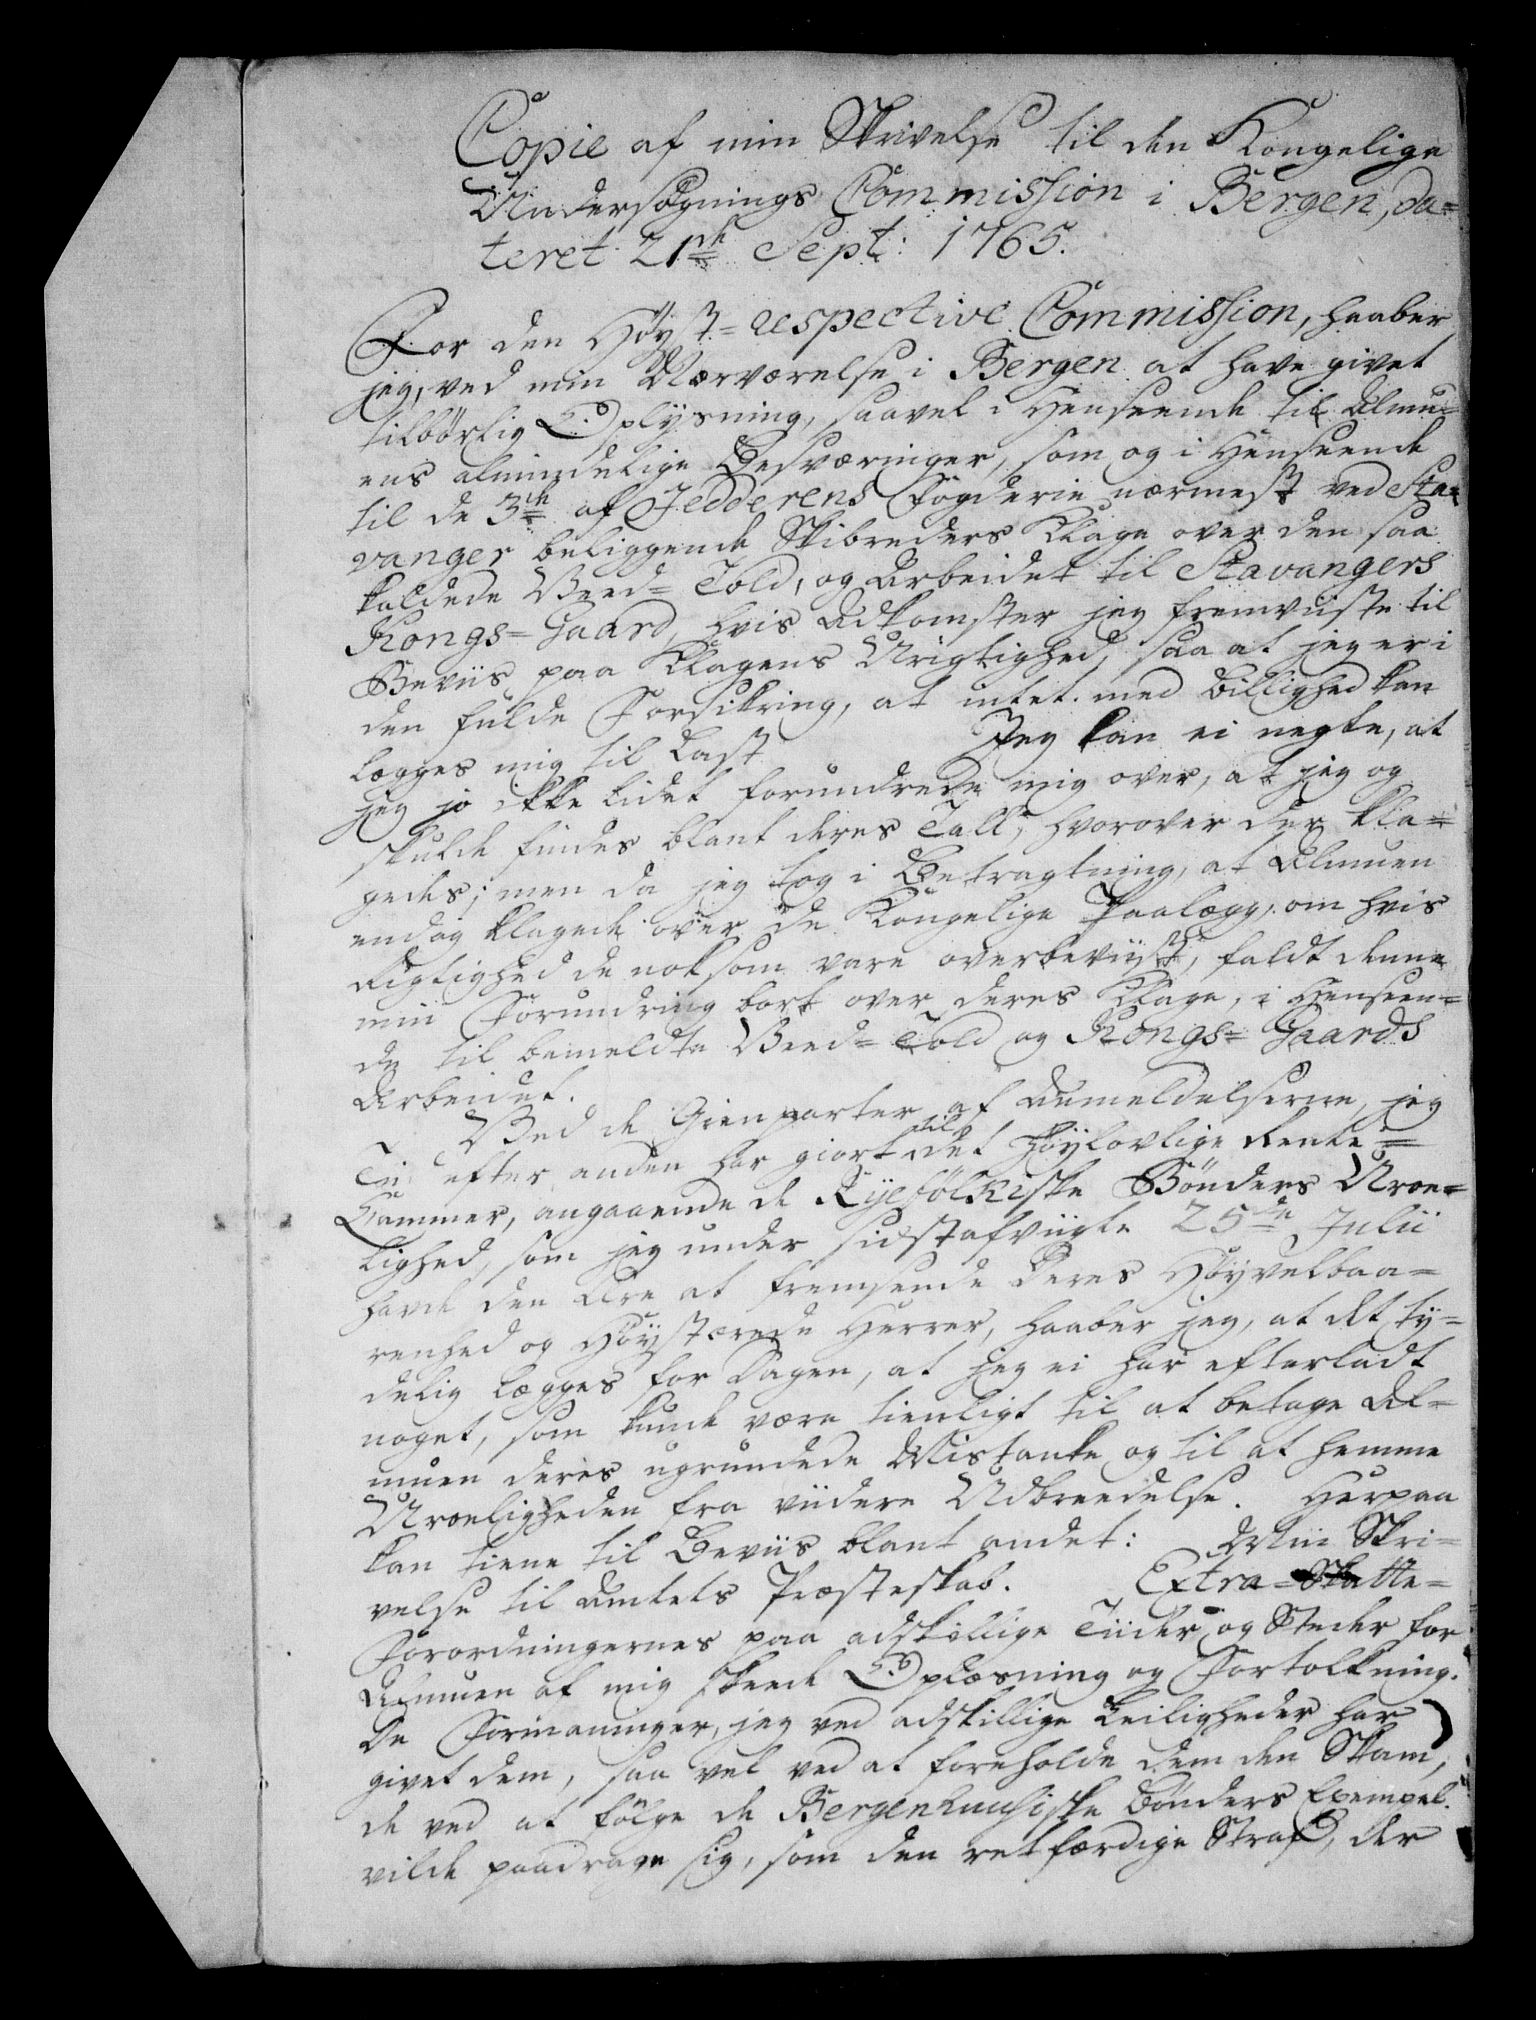 Copie af min Skrivelse til den Kongelige
Undersøgnings Commission i Bergen, da=
teret 21de Sept: 1765.
For den Høyst=respective Commission, haaber
jeg, ved min Nærværelse i Bergen at have givet
tilbørlig Oplysning, saavel i Henseende til Almu=
ens almindelige Besværinger, som og i Henseende
til de 3de af Jedderens Fogderie nærmest ved Sta=
vanger beliggende Skibreders Klage over den saa
kaldede Veed=Told, og Arbeidet til Stavangers
Kongs=Gaard, hvis Adkomster jeg fremviiste til
Beviis paa Klagens Urigtighed, saa at jeg er i
den fulde Forsikring, at intet med Billighed kan
lægges mig til Last Jeg kan ei negte, at
jeg jo ikke lidet forundrede mig over, at jeg og
skulde findes blant deres Tall, hvorover der kla=
gedes; men da jeg tog i Betragtning, at Almuen
endog klagede over de Kongelige Paalægg, om hvis
Rigtighed de noksom vare overbeviist, faldt denne
min Forundring bort over deres Klage, i Henseen=
de til bemeldte Veed=Told og Kongs=Gaards
Arbeidet.
Ved de Gienparter af Anmeldelserne, jeg
Tiid efter anden har giort til det høylovlige Rente=
Kammer, angaaende de Ryefølkiske Bønders Uroe=
lighed, som jeg under sidstafvigte 25de Julii
havde den Ære at fremsende Deres Høyvelbaa=
renhed og Høystærede Herrer, haaber jeg, at det ty=
delig lægges for Dagen, at jeg ei har efterladt
noget, som kunde være tienligt til at betage Al=
muen deres ugrundede Mistanke og til at hemme
Uroeligheden fra viidere Udbreedelse. Herpaa
kan tiene til Beviis blant andet: Min Skri=
velse til Amtets Præsteskab. Extra=Skatte=
Forordningernes paa adskillige Tiider og Steder for
Almuen af mig skeede Oplæsning og Fortolkning.
De Formaninger, jeg ved adskillige Leiligheder har
givet dem, saa vel ved at foreholde dem den Skam,
de ved at følge de Bergenhuusiske Bønders Exempel
vilde paadrage sig, som den retfærdige Straf, der